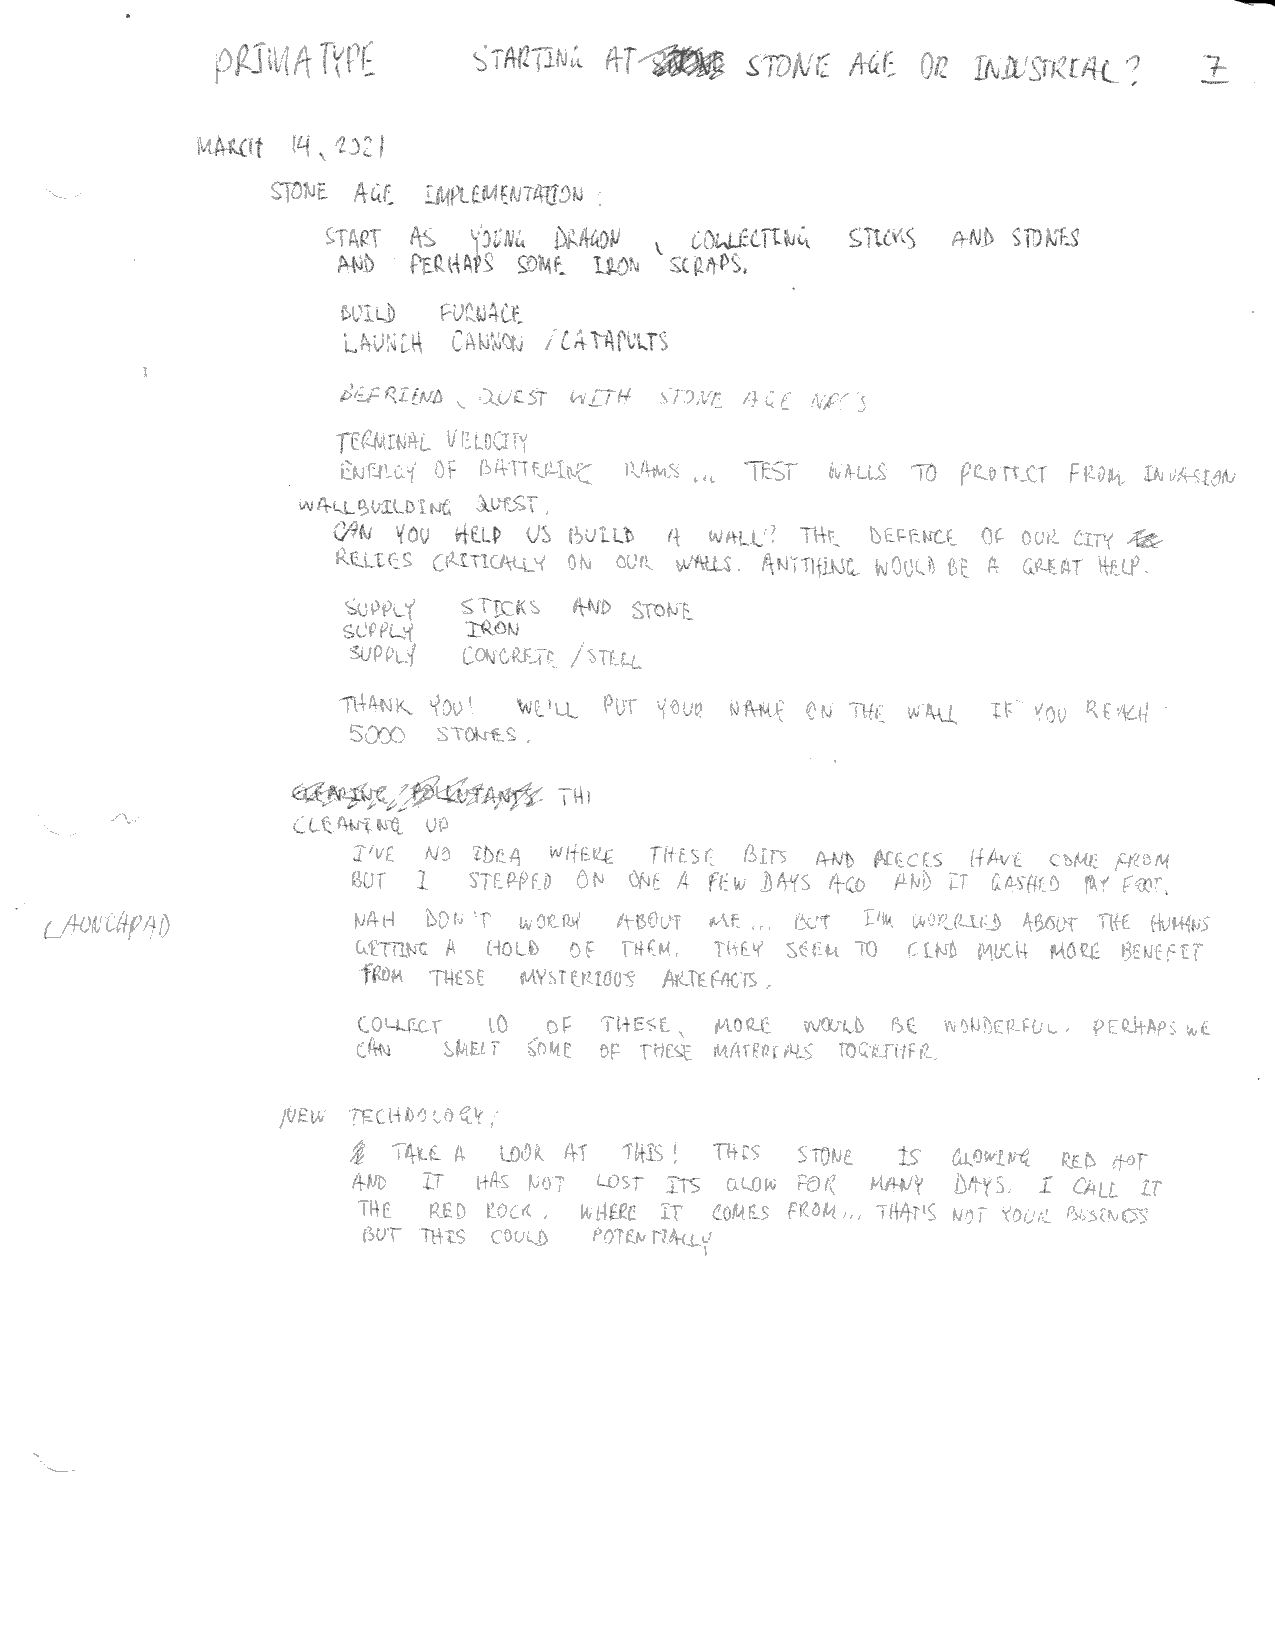 PRIMATYPE STARTING AT STONE AGE OR INDUSTRIAL? 7
MARCH 14, 2021
STONE AGE IMPLEMENTATION:
START AS YOUNG DRAGON, COLLECTING STICKS AND STONES
AND PERHAPS SOME IRON SCRAPS.
BUILD FURNACE
LAUNCH CANNON / CATAPULTS
BEFRIEND, QUEST WITH STONE AGE NPC'S
TERMINAL VELOCITY
ENERGY OF BATTERING RAMS... TEST WALLS TO PROTECT FROM INVASION
WALLBUILDING QUEST.
CAN YOU HELP US BUILD A WALL? THE DEFENCE OF OUR CITY
RELIES CRITICALLY ON OUR WALLS. ANYTHING WOULD BE A GREAT HELP.
SUPPLY STICKS AND STONE
SUPPLY IRON
SUPPLY CONCRETE / STEEL
THANK YOU! WE'LL PUT YOUR NAME ON THE WALL IF YOU REACH
5000 STONES.
CLEARING POLLUTANTS THI
CLEANING UP
I'VE NO IDEA WHERE THESE BITS AND PIECES HAVE COME FROM
BUT I STEPPED ON ONE A FEW DAYS AGO AND IT GASHED MY FOOT.
LAUNCHPAD
NAH DON'T WORRY ABOUT ME... BUT I'M WORRIED ABOUT THE HUMANS
GETTING A HOLD OF THEM. THEY SEEM TO FIND MUCH MORE BENEFIT
FROM THESE MYSTERIOUS ARTEFACTS.
COLLECT 10 OF THESE, MORE WOULD BE WONDERFUL. PERHAPS WE
CAN SMELT SOME OF THESE MATERIALS TOGETHER.
NEW TECHNOLOGY;
TAKE A LOOK AT THIS! THIS STONE IS GLOWING RED HOT
AND IT HAS NOT LOST ITS GLOW FOR MANY DAYS. I CALL IT
THE RED ROCK. WHERE IT COMES FROM... THAT'S NOT YOUR BUSINESS
BUT THIS COULD POTENTIALLY